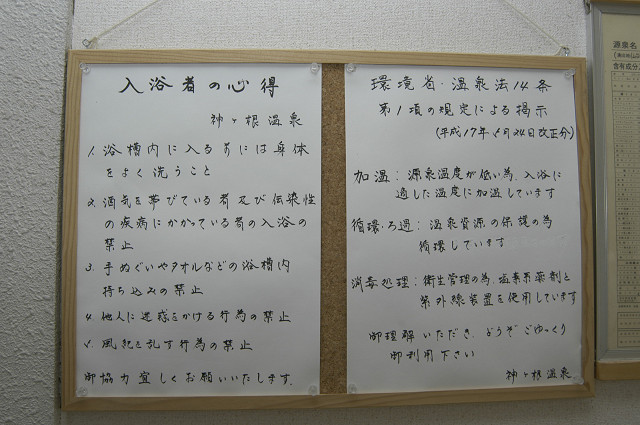 入浴者の心得
神ヶ根温泉
1. 浴槽内に入る前には身体
をよく洗うこと
2. 酒気を帯びている者及び伝染性
の疾病にかかっている者の入浴の
禁止
3. 手ぬぐいやタオルなどの浴槽内
持ち込みの禁止
4. 他人に迷惑をかける行為の禁止
5. 風紀を乱す行為の禁止
御協力宜しくお願いいたします.
環境省・温泉法14条
第1項の規定による掲示
(平成17年 5月24日改正分)
加温：源泉温度が低い為、入浴に
適した温度に加温しています
循環・ろ過：温泉資源の保護の為
循環しています
消毒処理：衛生管理の為、塩素系薬剤と
紫外線装置を使用しています
御理解いただき、どうぞごゆっくり
御利用下さい
神ヶ根温泉
源泉名
含有成分